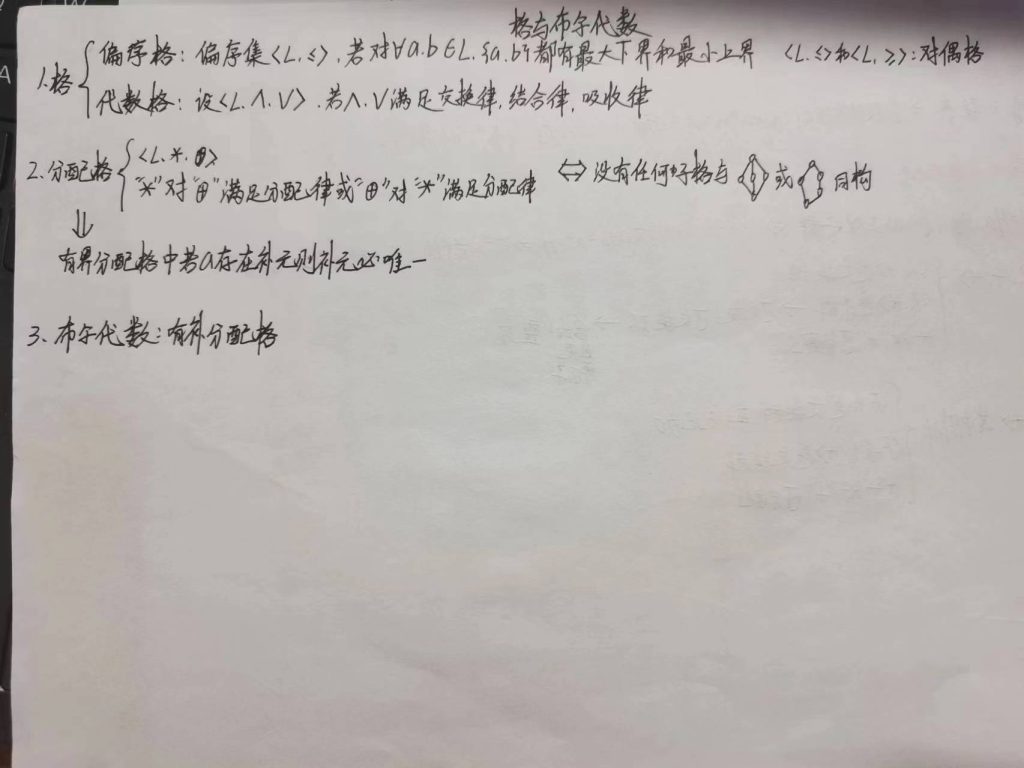 格与布尔代数
1.格 偏序格:偏序集<L,≤>,若对∀a.b∈L,{a,b}都有最大下界和最小上界 <L,≤>和<L,≥>:对偶格
代数格:设<L,∧,∨>,若∧,∨满足交换律,结合律,吸收律
2.分配格 <L,*,⊕>
"*"对"⊕"满足分配律或"⊕"对"*"满足分配律 ⇔ 没有任何子格与 或 同构
⇓
有界分配格中若a存在补元则补元必唯一
3、布尔代数:有补分配格